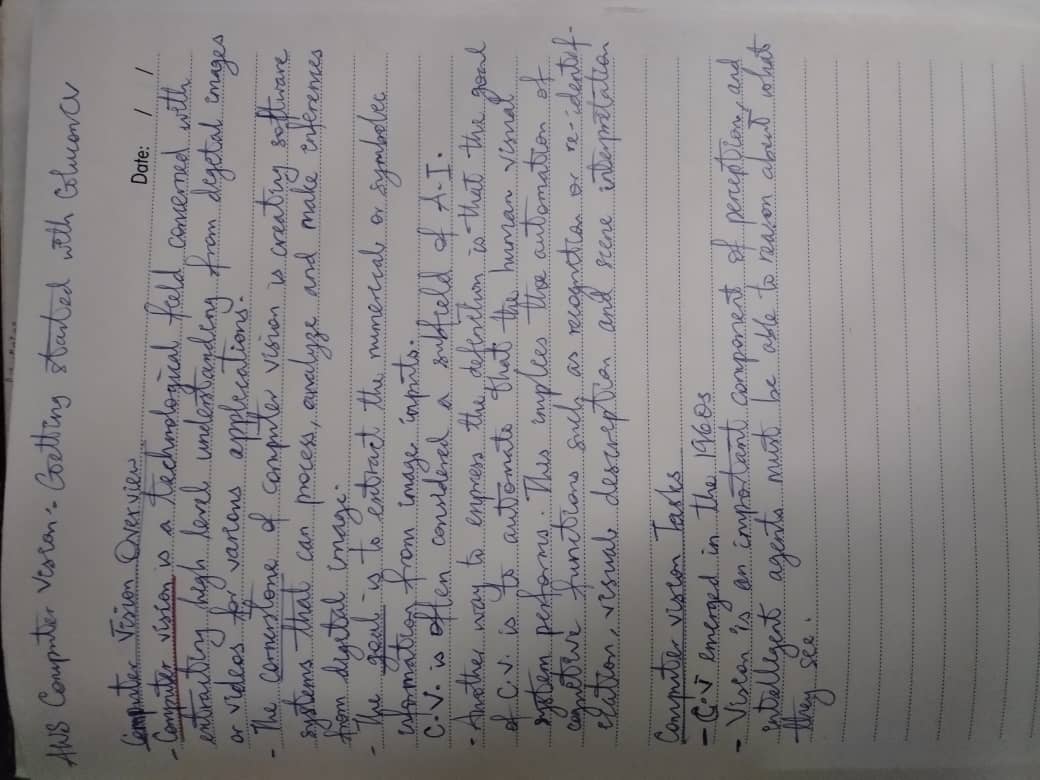 AWS Computer Vision:- Getting started with GluonCV
Date: / /
Computer Vision Overview
- Computer vision is a technological field concerned with
extracting high level understanding from digital images
or videos for various applications.
- The cornerstone of computer vision is creating software
systems that can process, analyze and make inferences
from digital image.
- The goal is to extract the numerical or symbolic
information from image inputs.
C.V. is often considered a subfield of A.I.
- Another way to express the definition is that the goal
of C.V. is to automate that the human visual
system performs. This implies the automation of
cognitive functions such as recognition or re-identif-
ication, visual description and scene interpretation
Computer vision Tasks
- C.V emerged in the 1960s
- Vision is an important component of perception, and
intelligent agents must be able to reason about what
they see.